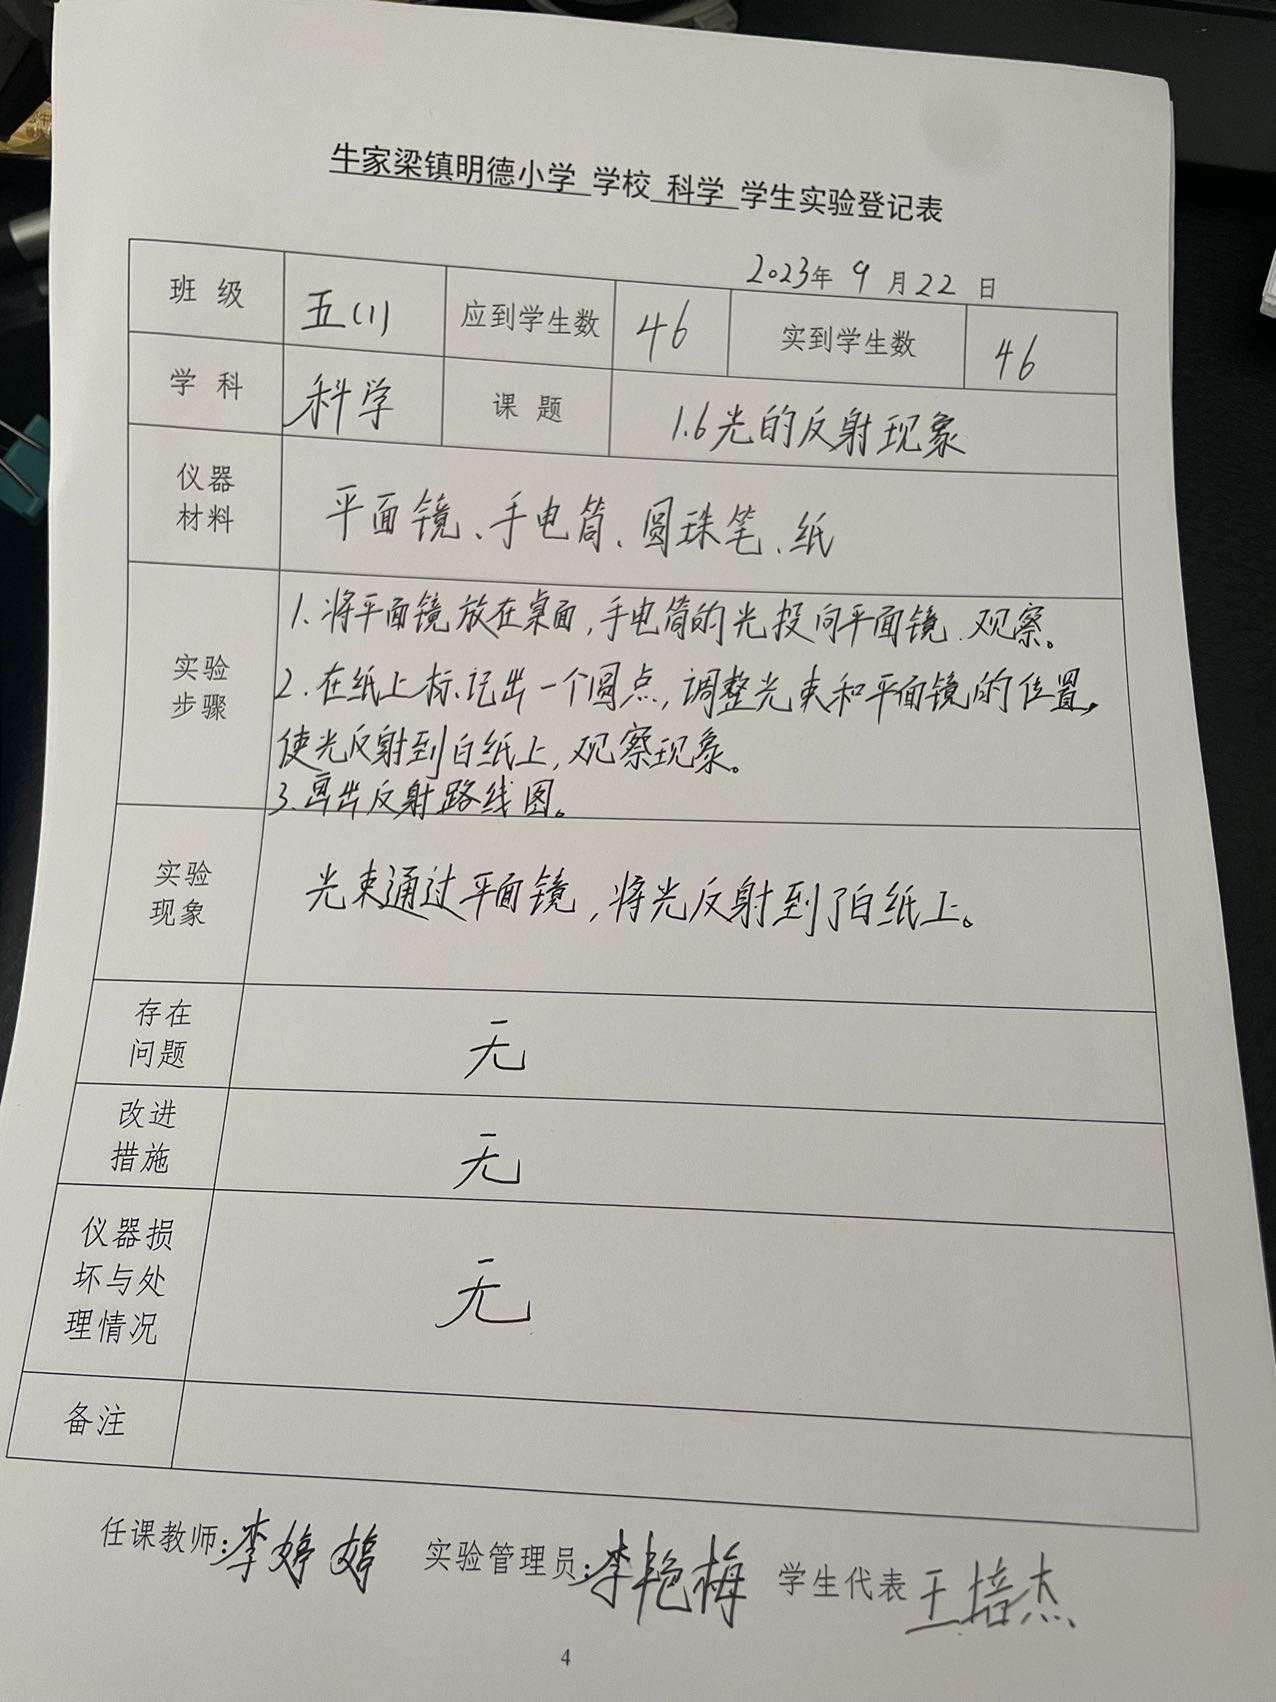 牛家梁镇明德小学 学校 科学 学生实验登记表
2023年 9 月 22 日
班 级 五(1) 应到学生数 46 实到学生数 46
学 科 科学 课 题 1.6光的反射现象
仪器
材料
平面镜、手电筒、圆珠笔、纸
实验
步骤
1.将平面镜放在桌面,手电筒的光投向平面镜、观察。
2.在纸上标记出一个圆点,调整光束和平面镜的位置,
使光反射到白纸上,观察现象。
3.画出反射路线图。
实验
现象
光束通过平面镜,将光反射到了白纸上。
存在
问题
无
改进
措施
无
仪器损
坏与处
理情况
无
备注
任课教师:李婷婷 实验管理员:李艳梅 学生代表 王培杰
4